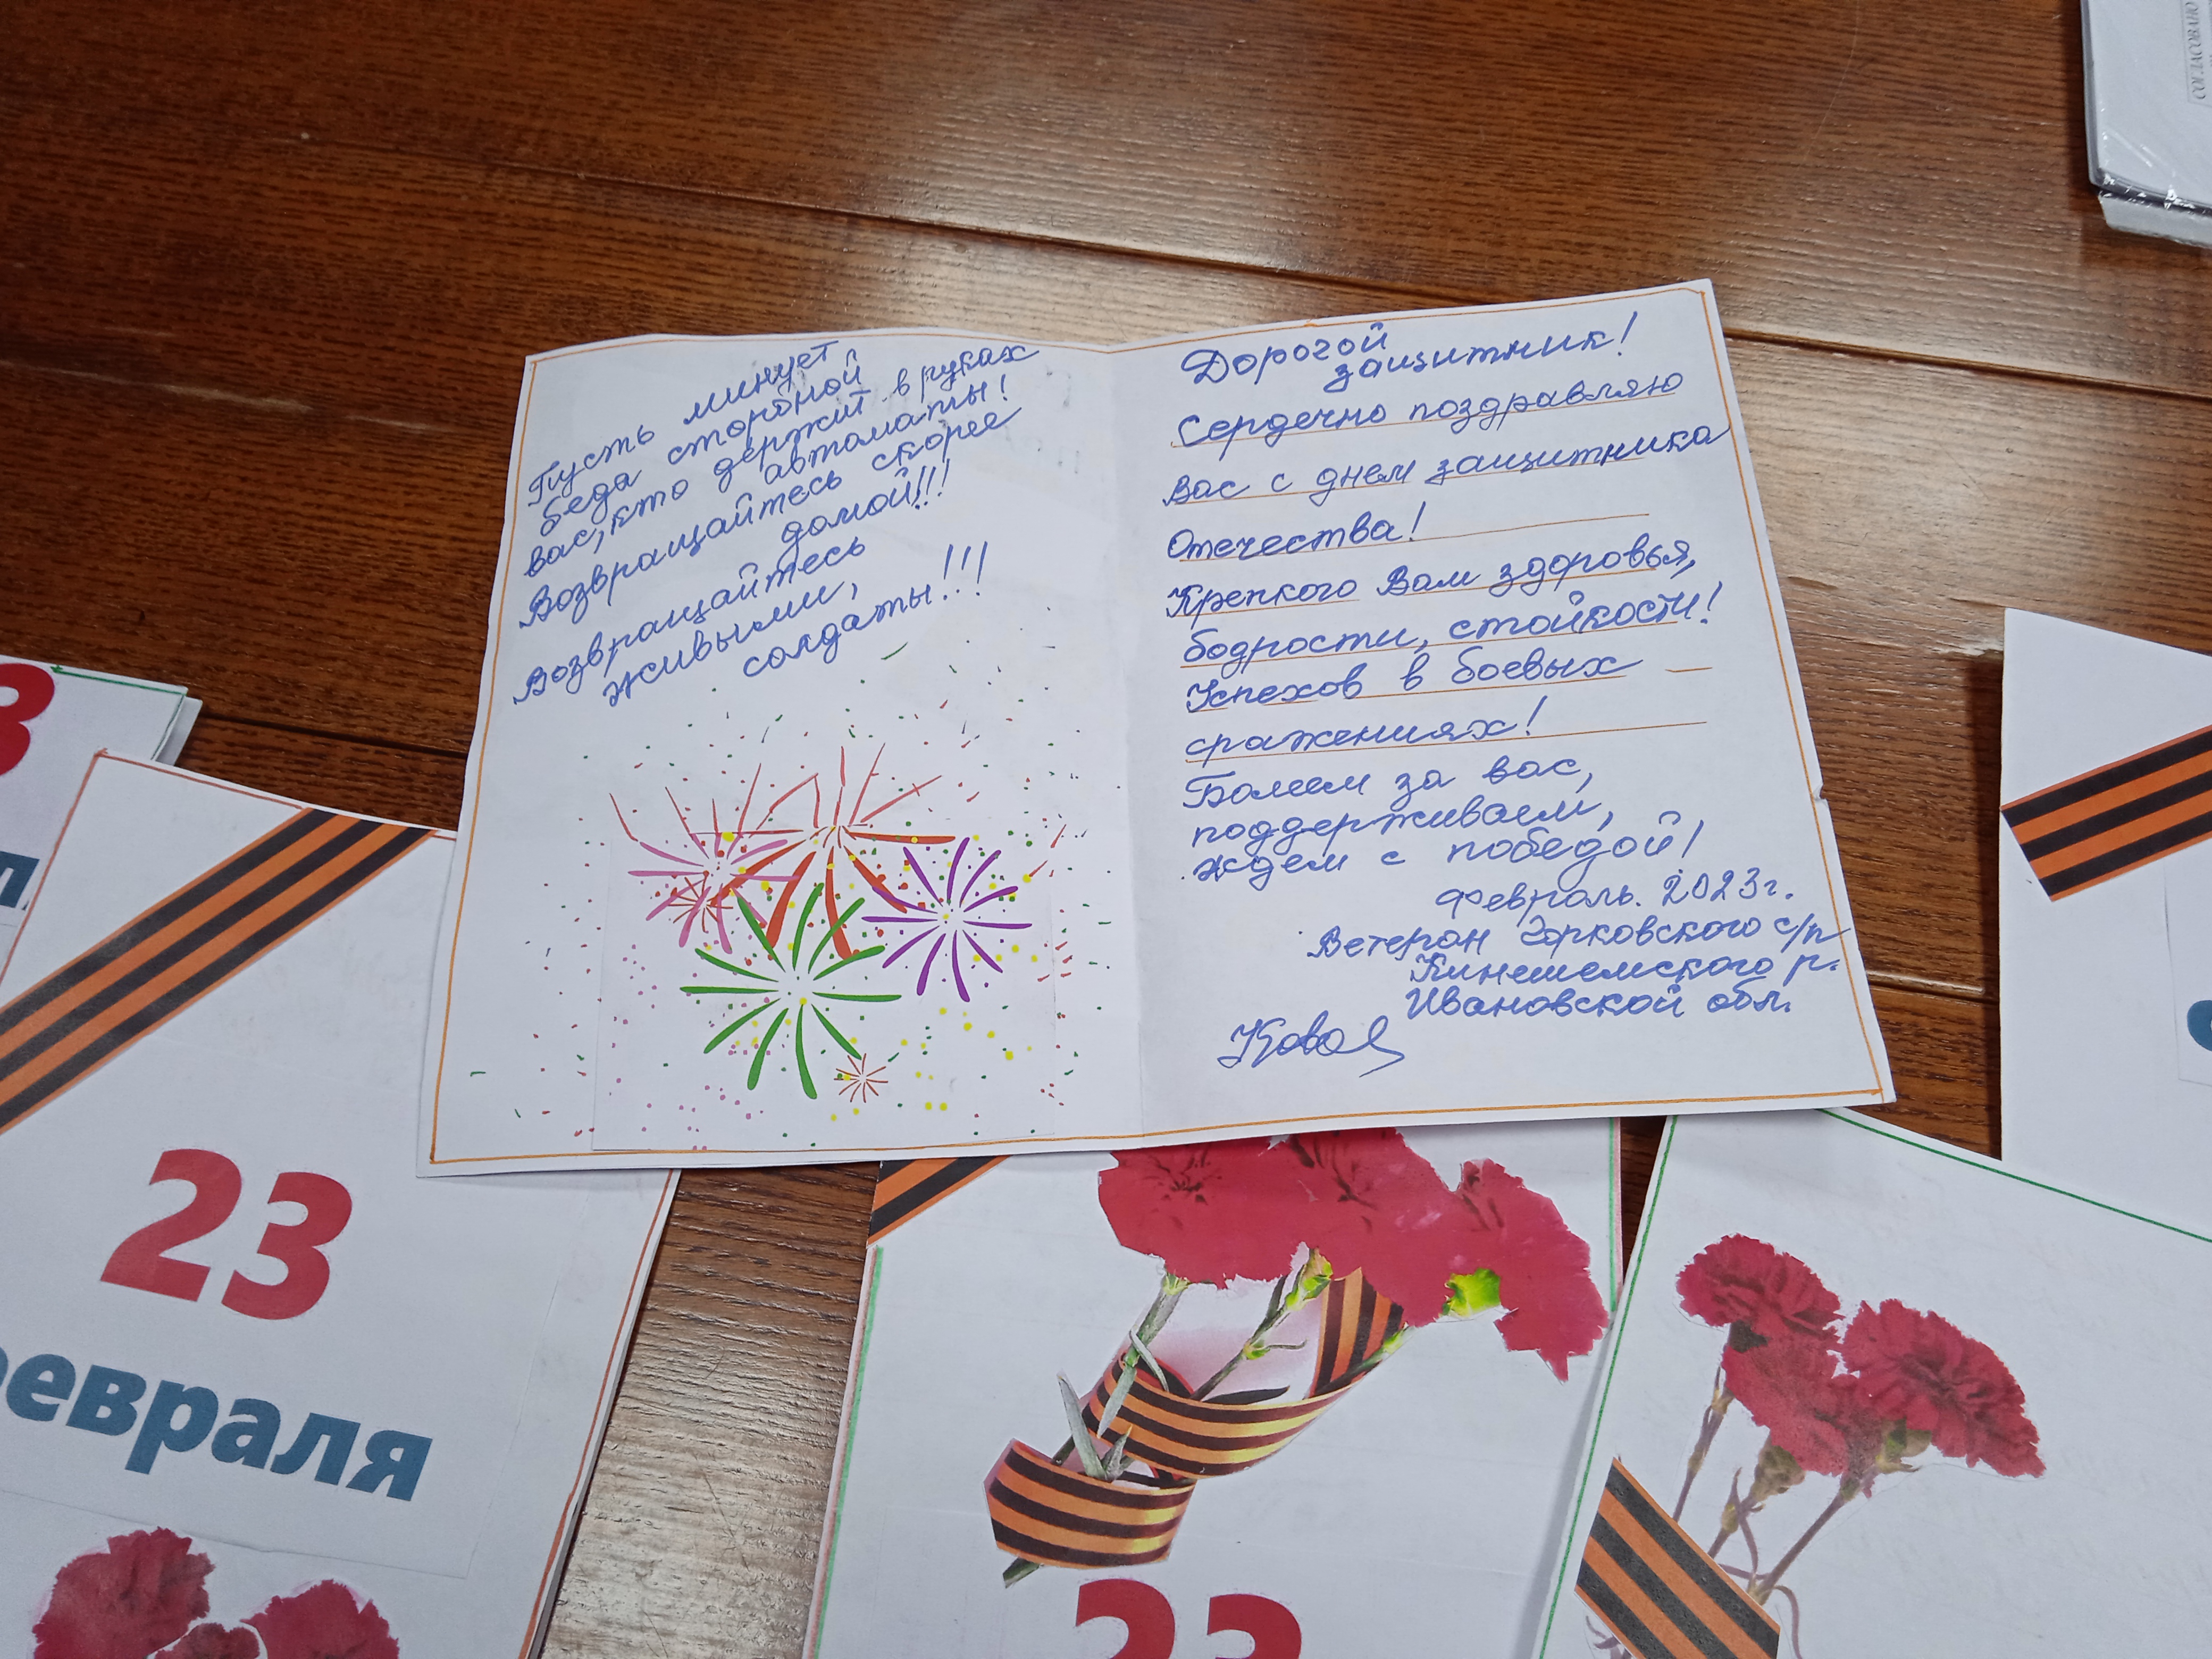 СОГЛАСОВАНО
Пусть минует
беда стороной
вас, кто держит в руках
автоматы!
Возвращайтесь скорее
домой!!!
Возвращайтесь
живыми,
солдаты!!!
Дорогой
защитник!
Сердечно поздравляю
Вас с днем защитника
Отечества!
Крепкого Вам здоровья,
бодрости, стойкости!
Успехов в боевых
сражениях!
Болеем за вас,
поддерживаем,
ждем с победой!
Февраль. 2023г.
Ветеран Горковского с/п
Кинешемского р.
Ивановской обл.
23
евраля
23